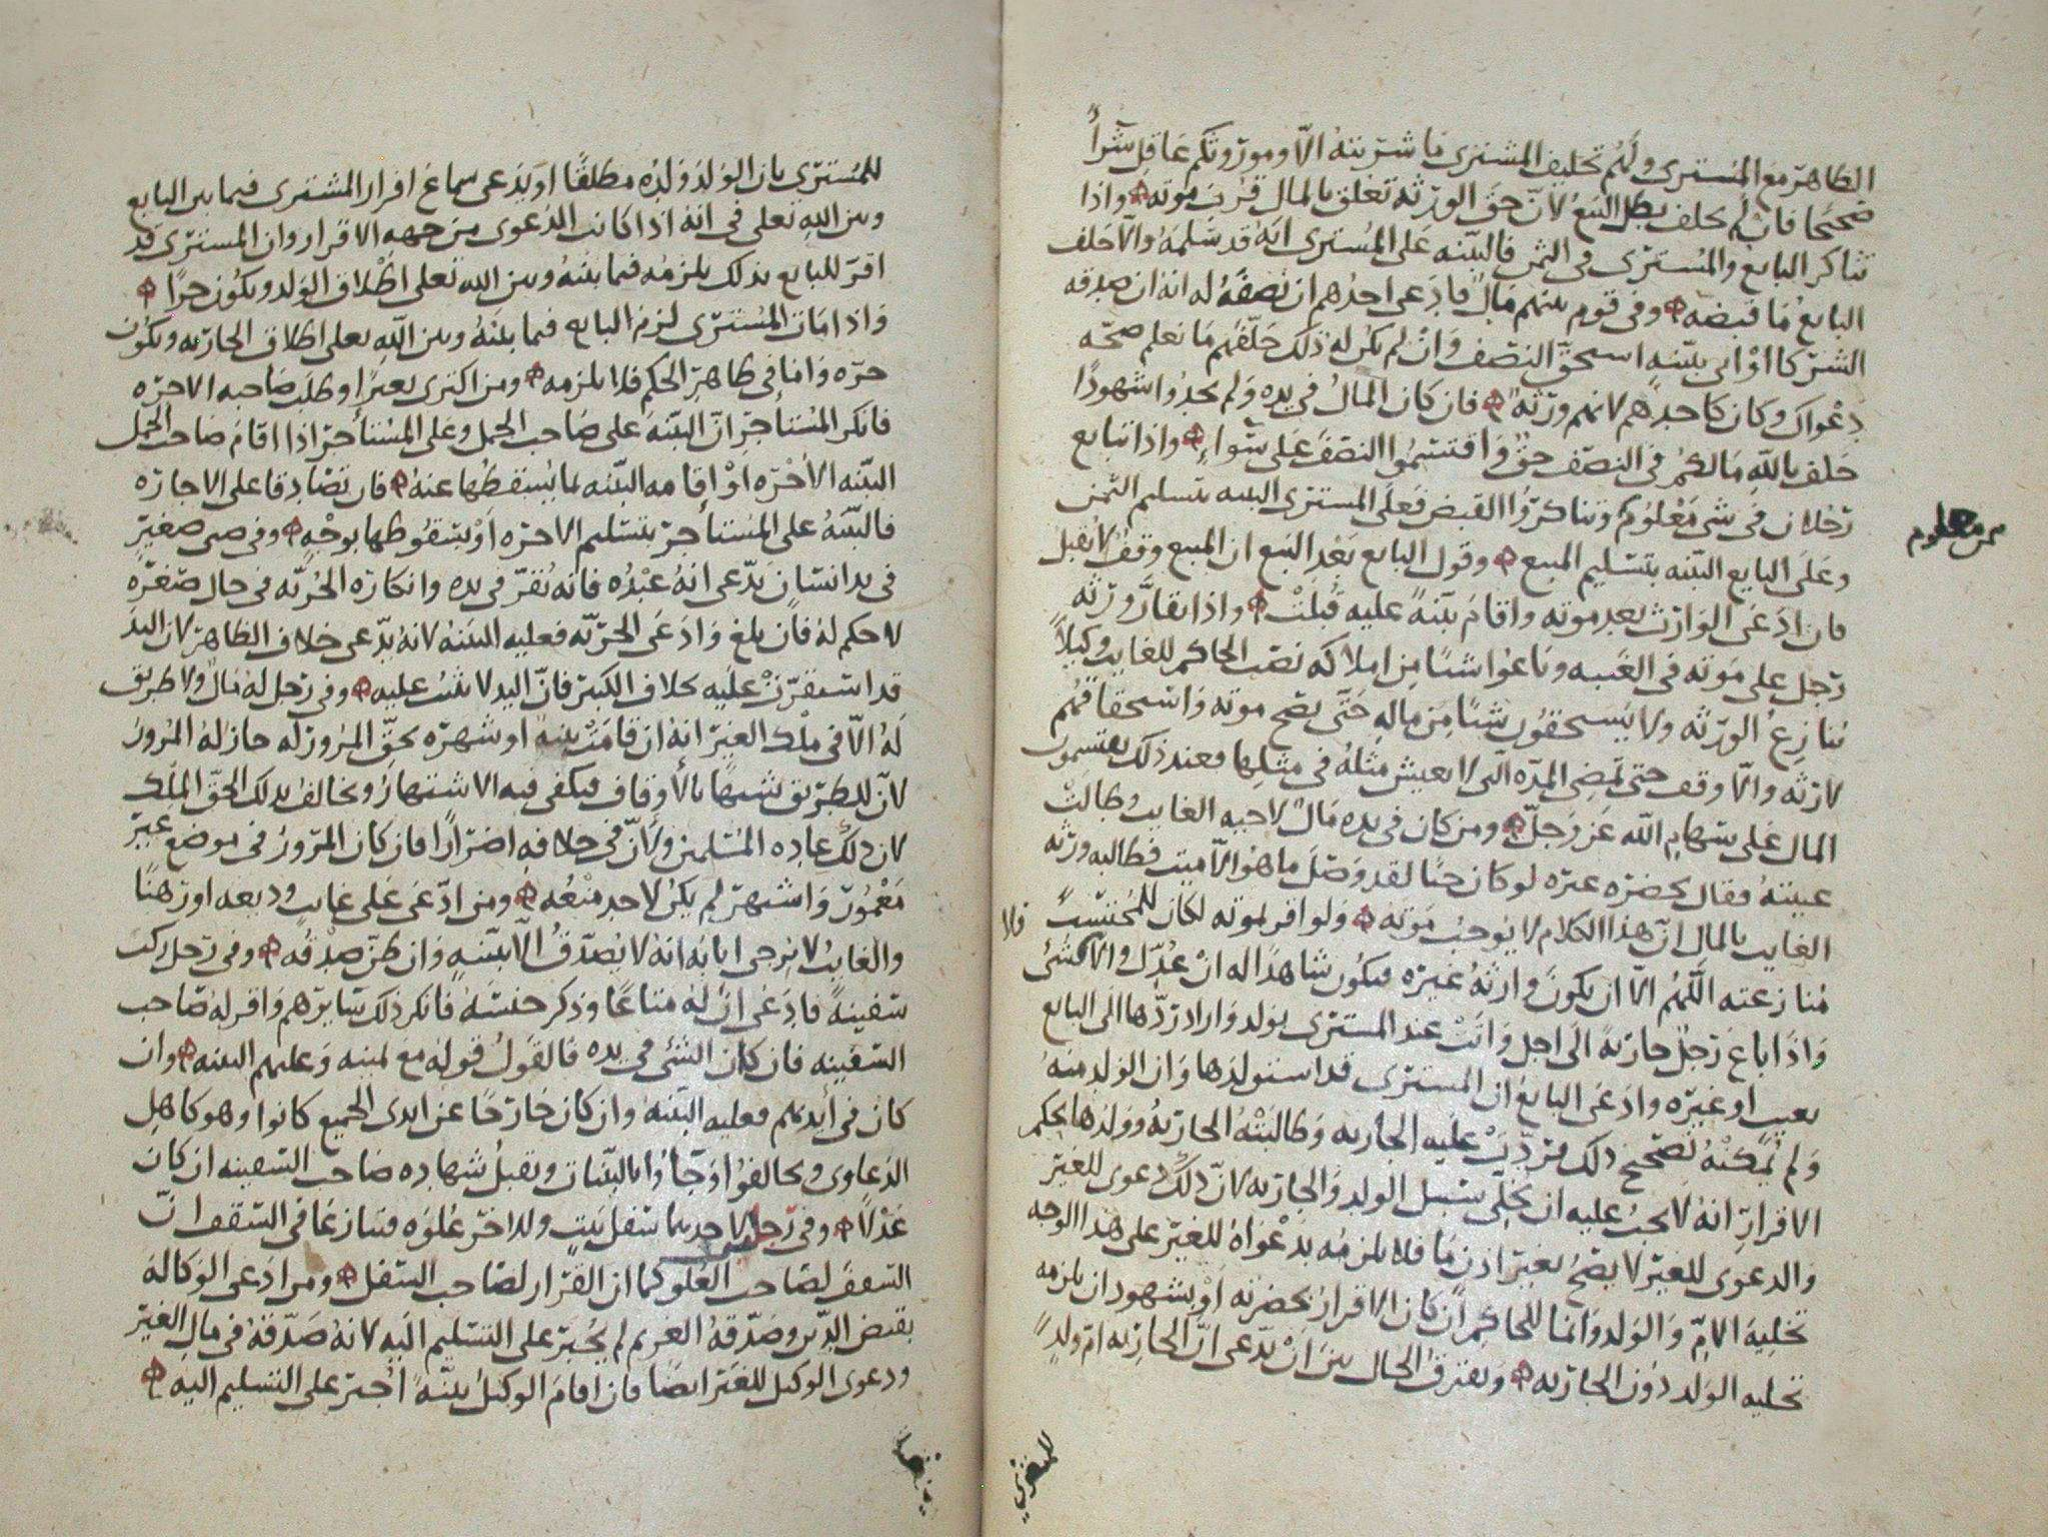 الظاهر مع المشترى ولهم تحليف المشترى ما شتريته الا وموروثكم عاقل شرأً
صحيحا فان لم يحلف بطل البيع لانّ حق الورثه تعلق بالمال قرب موته واذا
تناكر البايع والمشترى فى الثمن فالبينه على المشترى انه قد سلمه والا حلف
البايع ما قبضه وفى قوم بينهم مال فادعى احدهم ان نصفه له انه ان صدقه
الشركا او اتى ببينه استحق النصف وان لم يكن له ذلك حلفهم ما نعلم صحه
دعواك وكان كاحدهم لانهم ورثه فان كان المال فى يده ولم يجدوا شهودا
حلف بالله مالكم فى النصف حق واقتسموا النصف على سواء واذا تبايع
رجلان فى شى معلوم وتناكروا القبض فعلى المشترى البينه بتسليم الثمن
ثمن معلوم
وعلى البايع البينه بتسليم المبيع وقول البايع بعد البيع ان المبيع وقف لا يقبل
فان ادعى الوارث بعد موته واقام بينة عليه قبلت واذا تقارّ ورثه
رجل على موته فى الغيبه وباعوا شيئا من املاكه نصب الحاكم للغايب وكيلاً
ينازع الورثه ولا يستحقون شيئا من ماله حتى يصح موته واستحقاقهم
لارثه والا وقف حتى تمضى المده التى لا يعيش مثله فى مثلها فعند ذلك يقتسمون
المال على سهام الله عز وجل ومن كان فى يده مال لاخيه الغايب وطالبت
عينته فقال بحضره غيره لو كان حيا لقد وصل ما هو الا ميت فطالبه ورثه
الغايب بالمال ان هذا الكلام لا يوجب موته ولو اقر بموته لكان للمحتسب
فلا
منازعته اللهم الا ان يكون وارثه غيره فيكون شاهدا له ان عدّل والا
واذا باع رجل جارية الى اجل واتت عند المشترى بولد واراد ردها الى البايع
بعيب او غيره وادعى البايع ان المشترى قد استولدها وان الولد منه
ولم يمكنه تصحيح ذلك فردّت عليه الجاريه وطالبته الجاريه وولدها بحكم
الاقرار انه لا يجب عليه ان يخلّى سبيل الولد والجاريه لان ذلك دعوى للغير
والدعوى للغير لا يصح بغير اذن ما فلا يلزمه بدعواه للغير على هذا الوجه
تخلية الام والولد وانما للحاكم ان كان الاقرار بحضرته او بشهود ان يلزمه
تخليه الولد دون الجاريه ويفترق الحال بين ان يدّعى ان الجاريه ام ولدٍ
للمشترى
للمشترى بان الولد ولده مطلقًا او يدعى سماع اقرار المشترى فيما بين البايع
وبين الله تعلى فى انه اذا كانت الدعوى من جهه الاقرار وان المشترى قد
اقر للبايع بذلك يلزمه فيما بينه وبين الله تعلى اطلاق الولد ويكون حرًا
واذا مات المشترى لزم البايع فيما بينه وبين الله تعلى اطلاق الجاريه وتكون
حره واما فى ظاهر الحكم فلا يلزمه ومن اكترى بعيرا وطلب صاحبه الاجره
فانكر المستأجر انّ البينه على صاحب الجمل وعلى المستأجر اذا اقام صاحب الجمل
البينه الأجره او اقامه البينه بما يسقطها عنه فان تصادقا على الاجاره
فالبينه على المستأجر بتسليم الاجره او بسقوطها بوجه وفى صبى صغير
فى يد انسان يدّعى انه عبده فانه يقرّ فى يده وانكاره الحريّه فى حال صغره
لا حكم له فان بلغ وادعى الحريه فعليه البينه لانه يدعى خلاف الظاهر لان اليد
قد استقرت عليه بخلاف الكبير فان اليد لا تثبت عليه وفى رجل له مال ولا طريق
له الا فى ملك الغير انه ان قامت بينة او شهره بحق المرور له جاز له المرور
لانّ للطريق شبها بالأوقاف فيكفى فيه الاشتهار ويخالف بذلك الحق الملك
لان ذلك عاده المسلمين ولانّ فى خلافه اضرارًا فان كان المرور فى موضع غير
معمور واشتهر لم يكن لاحد منعه ومن ادّعى على غايب وديعه او رهنًا
والغايب لا يرجى ايابه انه لا يصدّق الا ببينه وان ظن صدقه وفى رجل ركب
سفينة فادعى ان له متاعًا وذكر جنسه فانكر ذلك سايرهم واقر له صاحب
السفينه فان كان الشئ فى يده فالقول قوله مع يمينه وعليهم البينه وان
كان فى أيديهم فعليه البينه وان كان خارجًا عن ايدى الجميع كانوا وهو كاهل
الدعاوى وتحالفوا او جاؤا بالبينات وتقبل شهاده صاحب السفينه ان كان
عدلًا وفى رجلين لاحدهما سفل بيت وللاخر علوه فتنازعا فى السقف انّ
السقف لصاحب العلو كما ان القرار لصاحب السفل ومن ادعى الوكالة
بقبض الدين وصدقه الغريم لم يجبر على التسليم اليه لانه صدّقه فى مال الغير
ودعوى الوكيل للغير ايضًا فان اقام الوكيل بينة أجبر على التسليم اليه